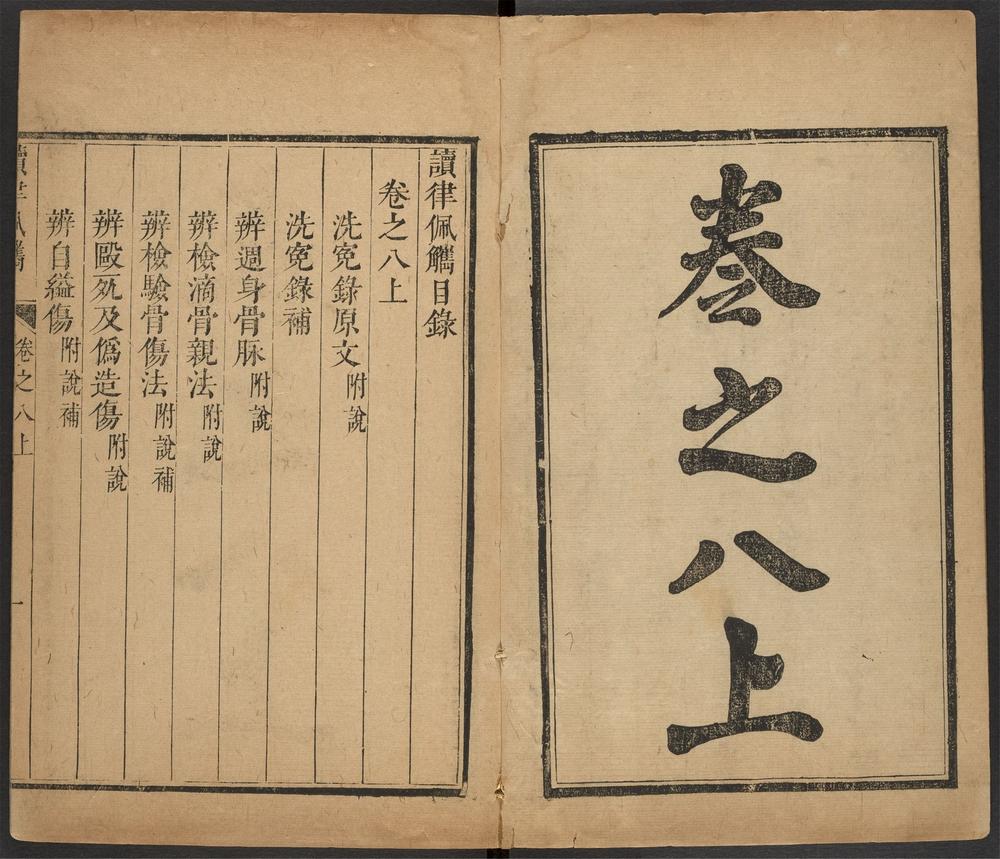 卷之八上
讀律佩觿目錄
卷之八上
洗寃錄原文附說
洗寃錄補
辨週身骨脉附說
辨檢滴骨親法附說
辨檢驗骨傷法附說補
辨毆死及僞造傷附說
辨自縊傷附說補
讀律佩觿 卷之八上 一